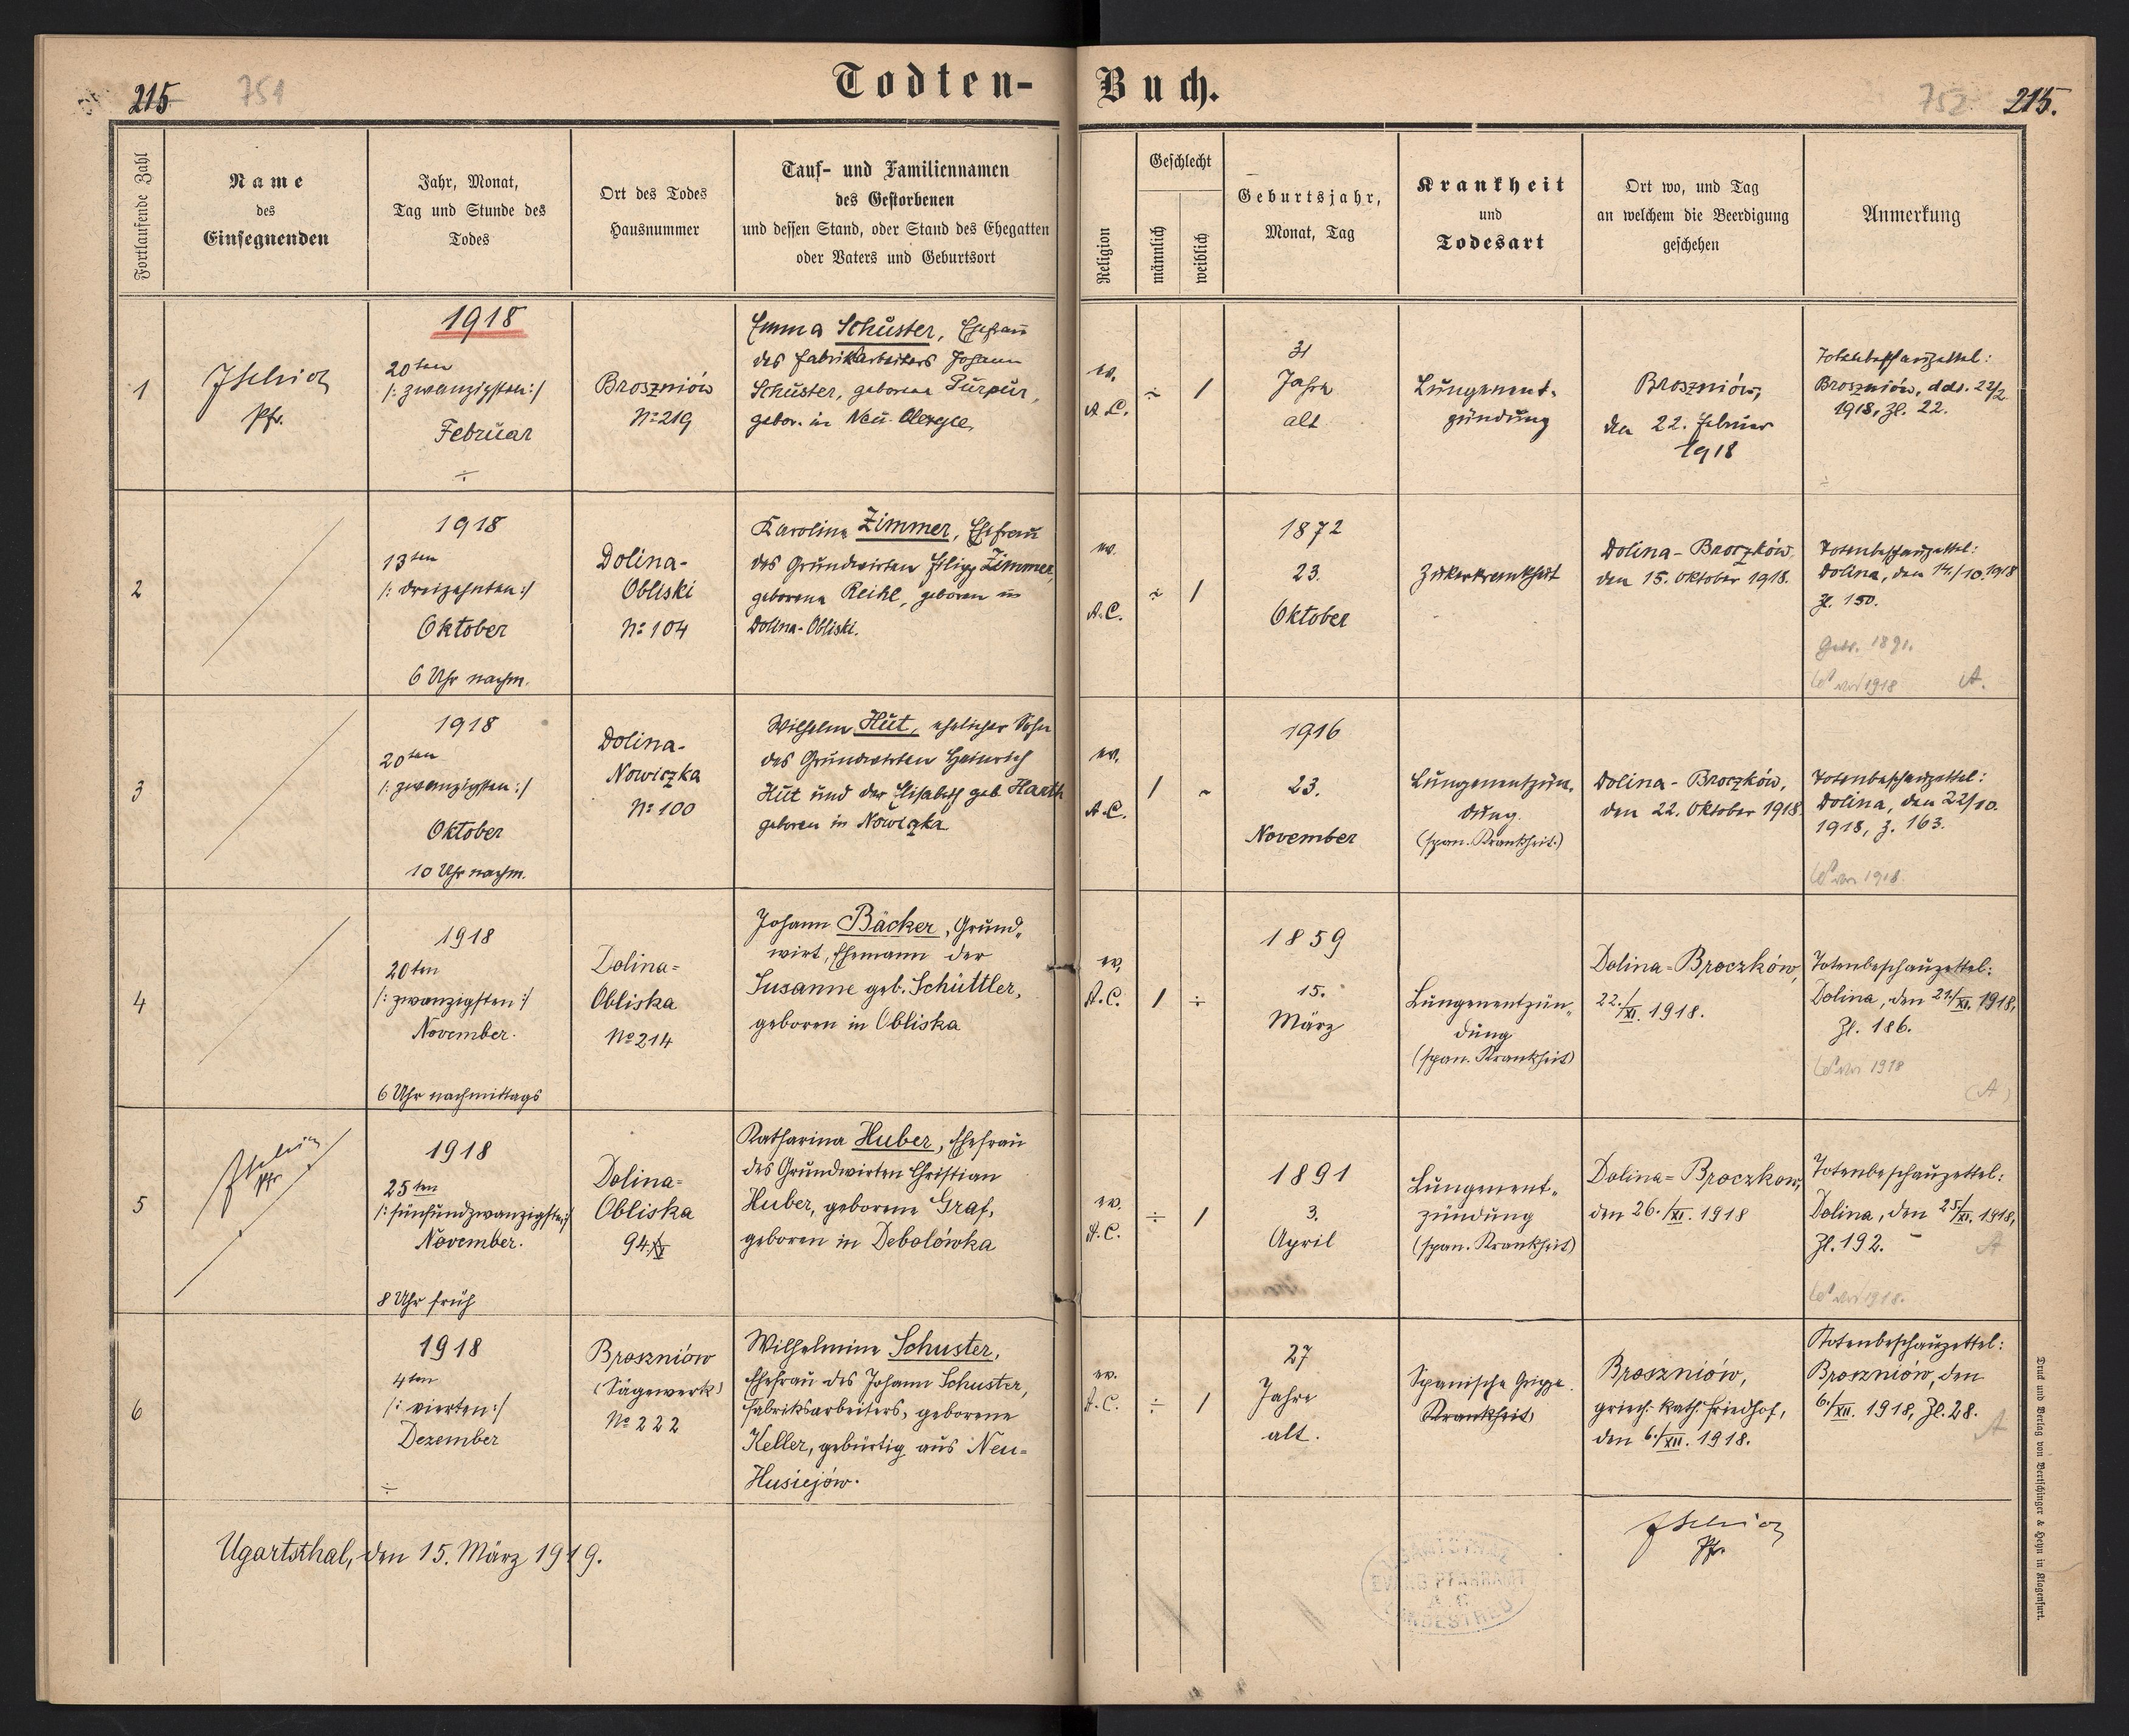 215
751
Todten-
Buch.
752
215.
Fortlaufende Zahl
Name
des
Einsegnenden
Jahr, Monat,
Tag und Stunde des
Todes
Ort des Todes
Hausnummer
Tauf- und Familiennamen
des Gestorbenen
und dessen Stand, oder Stand des Ehegatten
oder Vaters und Geburtsort
Religion
Geschlecht
männlich
weiblich
Geburtsjahr,
Monat, Tag
Krankheit
und
Todesart
Ort wo, und Tag
an welchem die Beerdigung
geschehen
Anmerkung
1
Pfr.
1918
20ten
/: zwanzigsten :/
Februar
÷
Broszniów
№ 219
Emma Schuster, Ehefrau
des Fabrikarbeiters Johann
Schuster, geborene Purpur,
gebor. in Neu-
ev.
A.C.
÷
/
31
Jahre
alt
Lungenent-
zündung
Broszniów,
den 22. Februar
1918
Totenbeschauzettel:
Broszniów, ddo. 22/2
1918, Zl. 22.
2
1918
13ten
/: dreizehnten :/
Oktober
6 Uhr nachm.
Dolina-
Obliski
№ 104
Karoline Zimmer, Ehefrau
des Grundwirten Filipp Zimmer,
geborene Reihl, geboren in
Dolina-Obliski.
ev.
A.C.
÷
/
1872
23.
Oktober
Zukerkrankheit
Dolina-Broczków,
den 15. Oktober 1918.
Totenbeschauzettel:
Dolina, den 14./10.1918
Zl. 150.
Geb. 1891.
1918
A.
3
1918
20ten
/: zwanzigsten :/
Oktober
10 Uhr nachm.
Dolina-
Nowiczka
№ 100
Wilhelm Hut, ehelicher Sohn
des Grundwirten Heinrich
Hut und der Elisabeth geb. Harth
geboren in Nowiczka.
ev.
A.C.
/
~
1916
23.
November
Lungenentzün-
dung.
(span. Krankheit.)
Dolina-Broczków,
den 22. Oktober 1918.
Totenbeschauzettel:
Dolina, den 22/10.
1918, Z. 163.
1918.
4
1918
20ten
/: zwanzigsten :/
November.
6 Uhr nachmittags
Dolina=
Obliska
№ 214
Johann Bäcker, Grund„
wirt, Ehemann der
Susanne geb. Schüttler,
geboren in Obliska
ev.
A.C.
/
÷
1859
15.
März
Lungenentzün„
dung
(span. Krankheit)
Dolina=Broczków,
22./XI. 1918.
Totenbeschauzettel:
Dolina, den 21./XI. 1918,
Zl. 186.
1918
(A)
5
Pfr
1918
25ten
/: fünfundzwanzigsten :/
November.
8 Uhr früh
Dolina=
Obliska
94
Katharina Huber, Ehefrau
des Grundwirten Christian
Huber, geborene Graf,
geboren in Debolówka
ev.
A.C.
÷
/
1891
3.
April
Lungenent„
zündung
(span. Krankheit)
Dolina=Broczkow,
den 26./XI. 1918
Totenbeschauzettel:
Dolina, den 25/XI. 1918,
Zl. 192.
A
1918.
6
1918
4ten
/: vierten :/
Dezember
÷
Broszniów
(Sägewerk)
№ 222
Wilhelmine Schuster,
Ehefrau des Johann Schuster,
Fabriksarbeiters, geborene
Keller, gebürtig aus Neu=
Husiejów.
ev.
A.C.
÷
/
27
Jahre
alt.
Spanische Grippe.
Krankheit
Broszniów,
griech. kath. Friedhof,
den 6./XII. 1918.
Totenbeschauzettel:
Broszniów, den
6./XII. 1918, Zl. 28.
A
Ugartsthal, den 15. März 1919.
Pfr.
EVANG PFARRAMT
A.C.
Druck und Verlag von Bertschinger & Heyn in Klagenfurt.